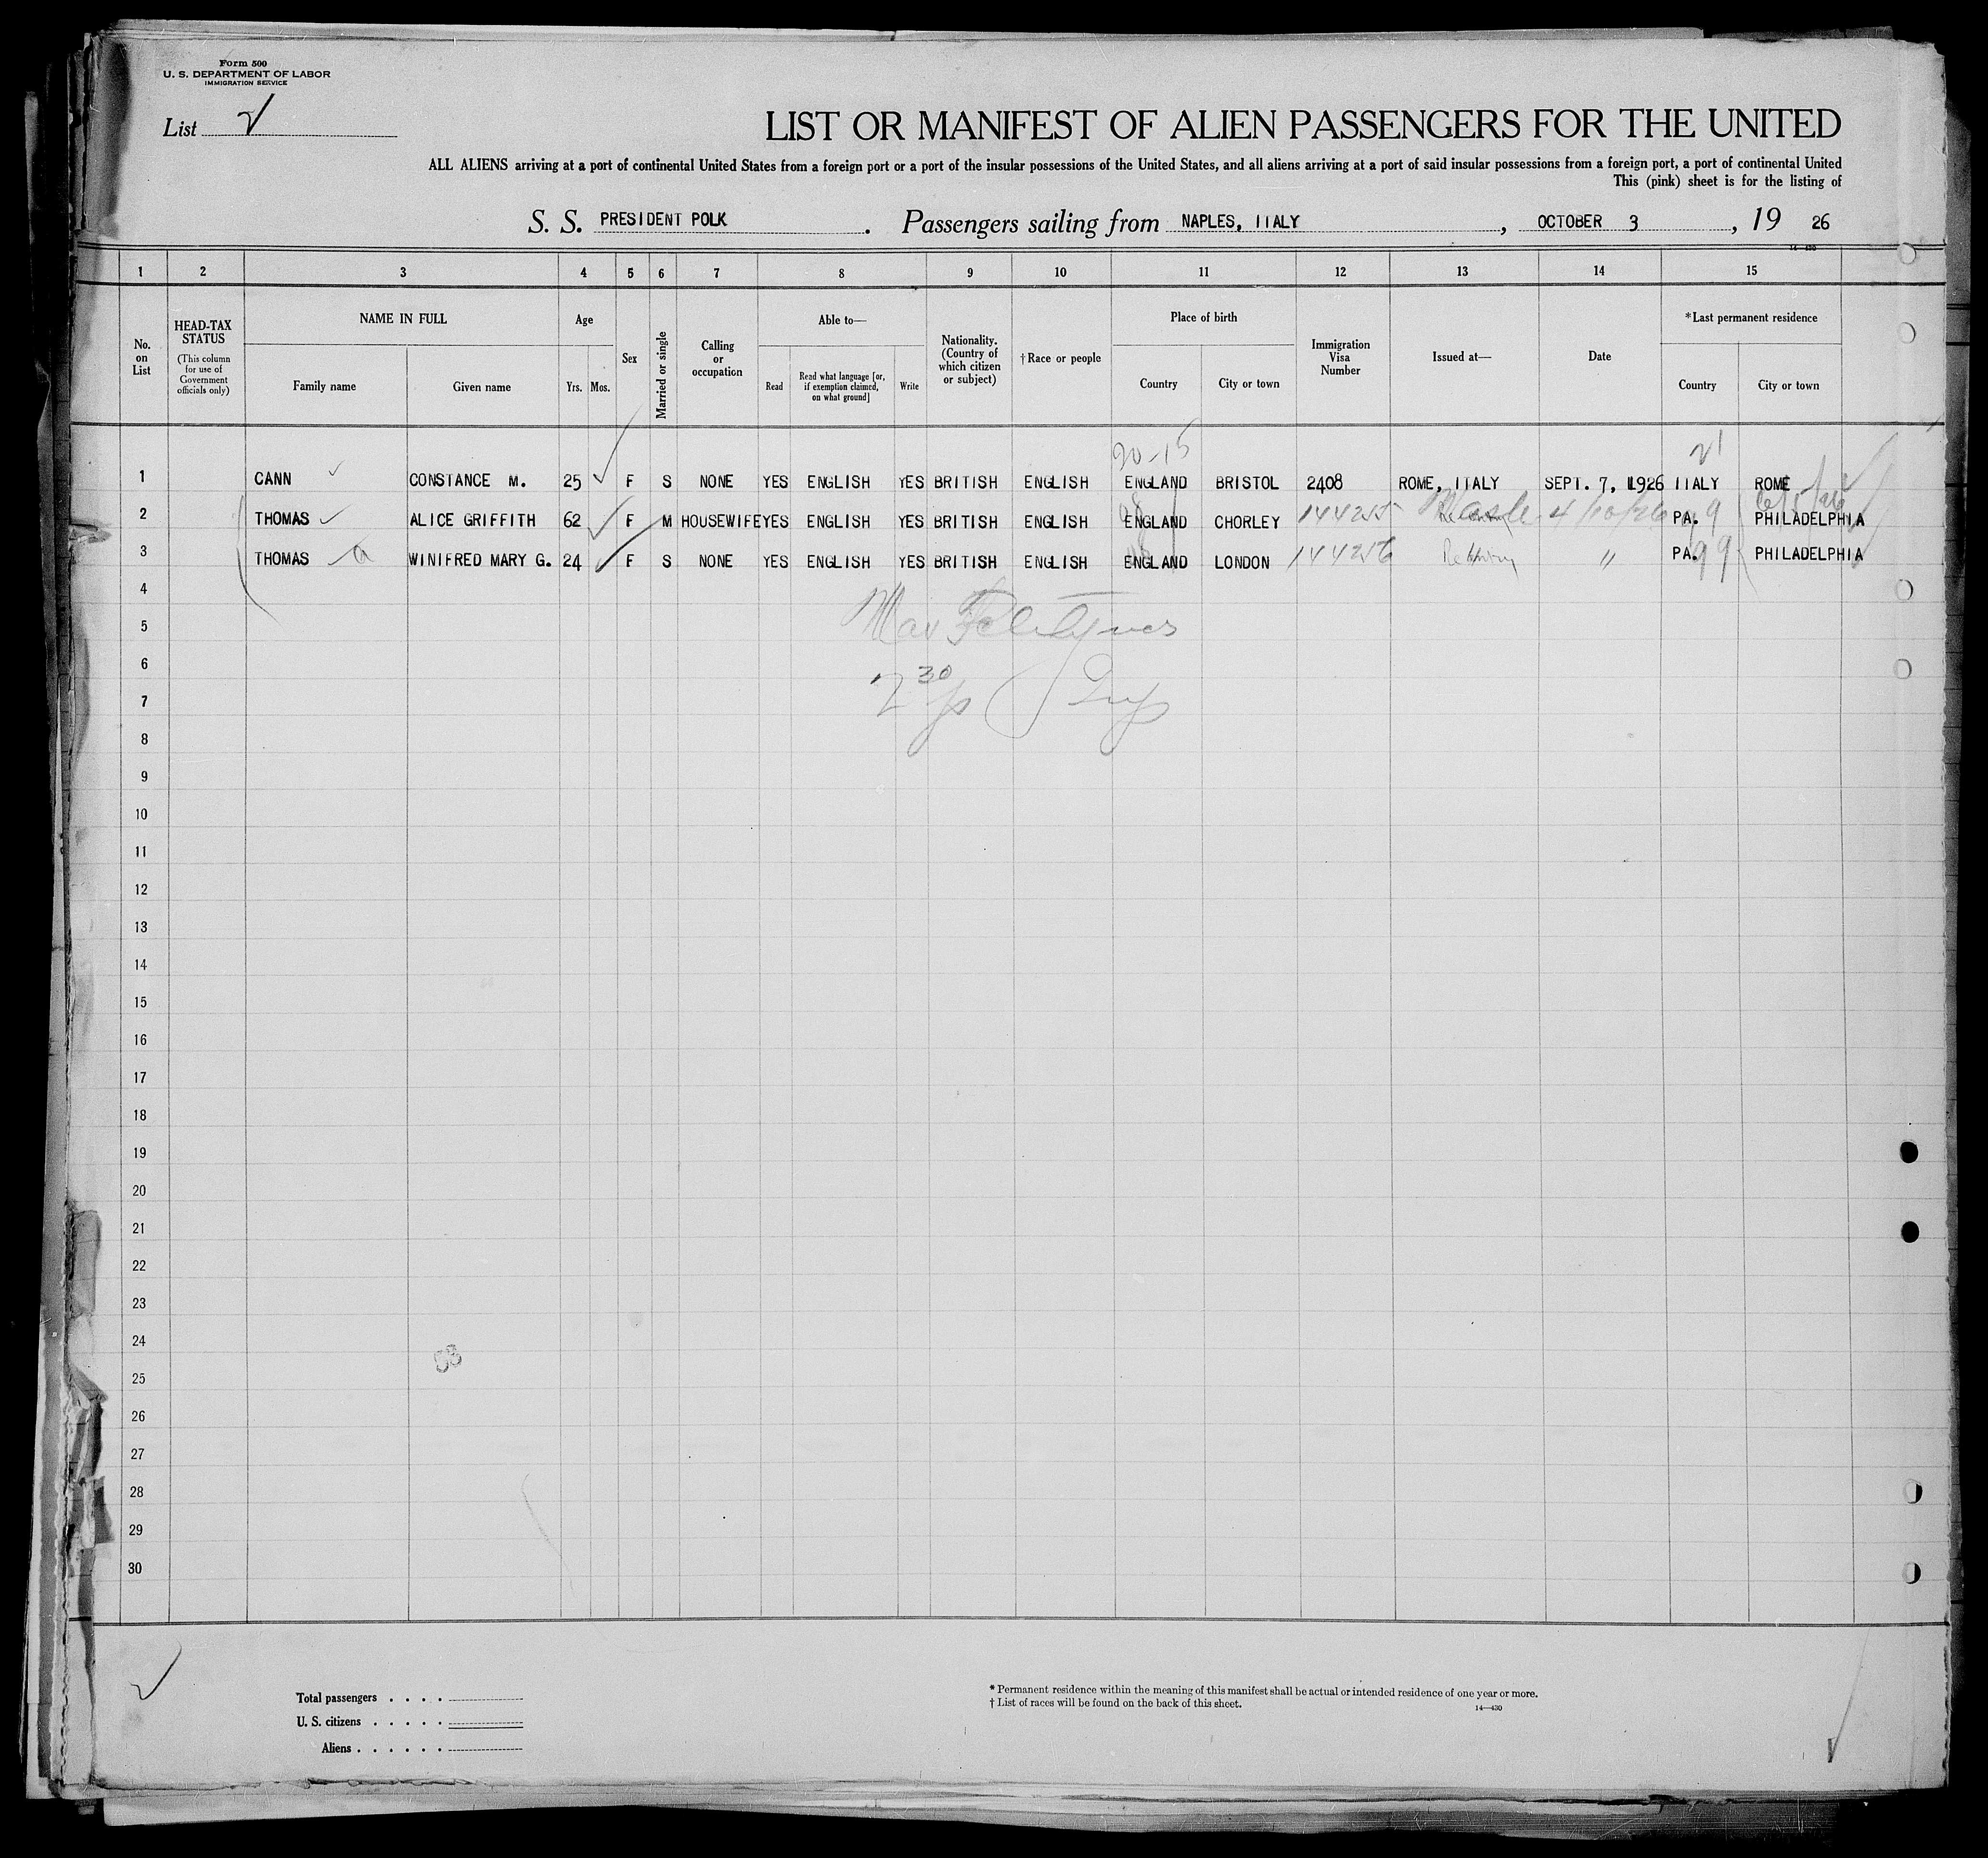 Form 500
U. S. DEPARTMENT OF LABOR
IMMIGRATION SERVICE
List
LIST OR MANIFEST OF ALIEN PASSENGERS FOR THE UNITED
ALL ALIENS arriving at a port of continental United States from a foreign port or a port of the insular possessions of the United States, and all aliens arriving at a port of said insular possessions from a foreign port, a port of continental United
This (pink) sheet is for the listing of
S. S. PRESIDENT POLK . Passengers sailing from NAPLES, ITALY , OCTOBER 3 , 19 26
14-430
1 2 3 4 5 6 7 8 9 10 11 12 13 14 15
No. on List
HEAD-TAX STATUS
(This column for use of Government officials only)
NAME IN FULL
Family name
Given name
Age
Yrs. Mos.
Sex
Married or single
Calling or occupation
Able to—
Read
Read what language [or, if exemption claimed, on what ground]
Write
Nationality. (Country of which citizen or subject)
†Race or people
Place of birth
Country
City or town
Immigration Visa Number
Issued at—
Date
*Last permanent residence
Country
City or town
20-15
21
1 CANN CONSTANCE M. 25 F S NONE YES ENGLISH YES BRITISH ENGLISH ENGLAND BRISTOL 2408 ROME, ITALY SEPT. 7, 1926 ITALY ROME
2 THOMAS ALICE GRIFFITH 62 F M HOUSEWIFE YES ENGLISH YES BRITISH ENGLISH ENGLAND CHORLEY 144255 Wash 4/10/26 PA. 99 PHILADELPHIA
3 THOMAS WINIFRED MARY G. 24 F S NONE YES ENGLISH YES BRITISH ENGLISH ENGLAND LONDON 144256 " PA. 99 PHILADELPHIA
4
5 Max
6
7 2 30 p Insp
8
9
10
11
12
13
14
15
16
17
18
19
20
21
22
23
24
53
25
26
27
28
29
30
Total passengers . . . .
U. S. citizens . . . . .
Aliens . . . . . .
* Permanent residence within the meaning of this manifest shall be actual or intended residence of one year or more.
† List of races will be found on the back of this sheet.
14—430